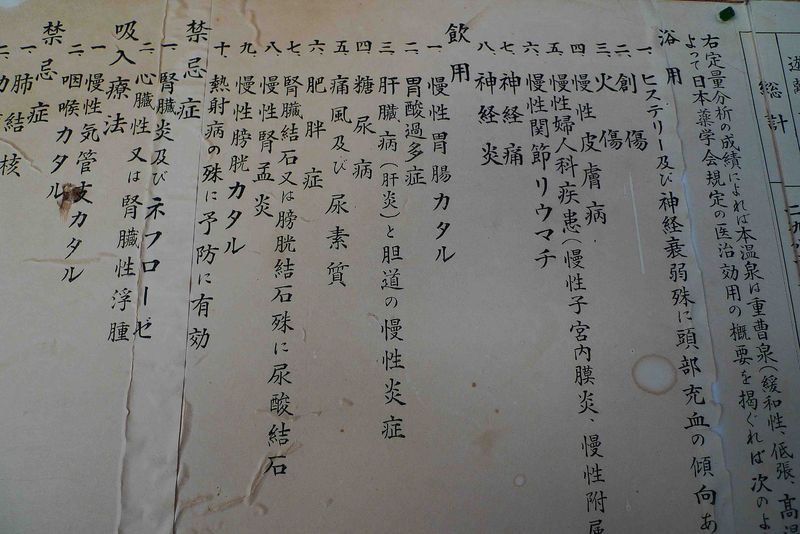 総計
右定量分析の成績によれば本温泉は重曹泉(緩和性、低張、高温
よって日本薬学会規定の医治効用の概要を掲ぐれば次のよ
浴用
一、ヒステリー及び神経衰弱殊に頭部充血の傾向あ
二、創傷
三、火傷
四、慢性皮膚病
五、慢性婦人科疾患(慢性子宮内膜炎、慢性附属
六、慢性関節リウマチ
七、神経痛
八、神経炎
飲用
一、慢性胃腸カタル
二、胃酸過多症
三、肝臓病(肝炎)と胆道の慢性炎症
四、糖尿病
五、痛風及び尿素質
六、肥胖症
七、腎臓結石又は膀胱結石殊に尿酸結石
八、慢性腎盂炎
九、慢性膀胱カタル
十、熱射病の殊に予防に有効
禁忌症
一、腎臓炎及びネフローゼ
二、心臓性又は腎臓性浮腫
吸入療法
一、慢性気管支カタル
二、咽喉カタル
禁忌症
一、肺結核
二、